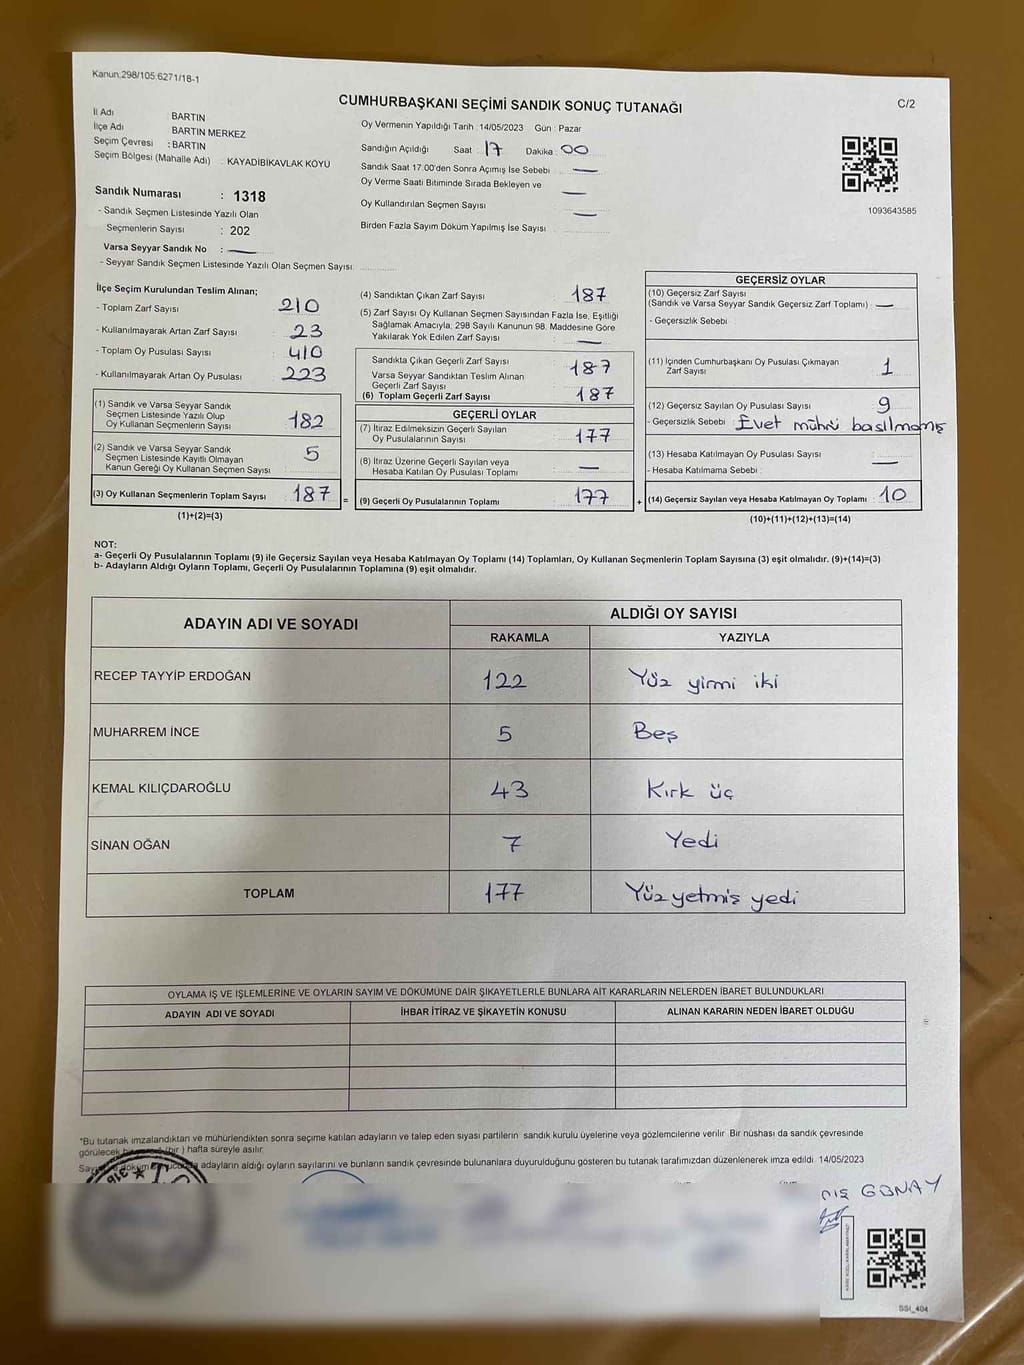 Kanun,298/105.6271/18-1
CUMHURBAŞKANI SEÇİMİ SANDIK SONUÇ TUTANAĞI
C/2
İl Adı : BARTIN
İlçe Adı : BARTIN MERKEZ
Seçim Çevresi : BARTIN
Seçim Bölgesi (Mahalle Adı) : KAYADİBİKAVLAK KÖYÜ
Sandık Numarası : 1318
- Sandık Seçmen Listesinde Yazılı Olan
Seçmenlerin Sayısı : 202
Varsa Seyyar Sandık No : —
- Seyyar Sandık Seçmen Listesinde Yazılı Olan Seçmen Sayısı:
Oy Vermenin Yapıldığı Tarih : 14/05/2023 Gün : Pazar
Sandığın Açıldığı Saat : 17 Dakika : 00
Sandık Saat 17.00'den Sonra Açımış İse Sebebi : —
Oy Verme Saati Bitiminde Sırada Bekleyen ve —
Oy Kullandırılan Seçmen Sayısı : —
Birden Fazla Sayım Döküm Yapılmış İse Sayısı :
1093643585
İlçe Seçim Kurulundan Teslim Alınan;
- Toplam Zarf Sayısı : 210
- Kullanılmayarak Artan Zarf Sayısı : 23
- Toplam Oy Pusulası Sayısı : 410
- Kullanılmayarak Artan Oy Pusulası : 223
(1) Sandık ve Varsa Seyyar Sandık
Seçmen Listesinde Yazılı Olup
Oy Kullanan Seçmenlerin Sayısı : 182
(2) Sandık ve Varsa Seyyar Sandık
Seçmen Listesinde Kayıtlı Olmayan
Kanun Gereği Oy Kullanan Seçmen Sayısı : 5
(3) Oy Kullanan Seçmenlerin Toplam Sayısı : 187 =
(1)+(2)=(3)
(4) Sandıktan Çıkan Zarf Sayısı : 187
(5) Zarf Sayısı Oy Kullanan Seçmen Sayısından Fazla İse, Eşitliği
Sağlamak Amacıyla; 298 Sayılı Kanunun 98. Maddesine Göre
Yakılarak Yok Edilen Zarf Sayısı : —
Sandıkta Çıkan Geçerli Zarf Sayısı : 187
Varsa Seyyar Sandıktan Teslim Alınan
Geçerli Zarf Sayısı :
(6) Toplam Geçerli Zarf Sayısı : 187
GEÇERLİ OYLAR
(7) İtiraz Edilmeksizin Geçerli Sayılan
Oy Pusulalarının Sayısı : 177
(8) İtiraz Üzerine Geçerli Sayılan veya
Hesaba Katılan Oy Pusulası Toplamı : —
(9) Geçerli Oy Pusulalarının Toplamı : 177 +
GEÇERSİZ OYLAR
(10) Geçersiz Zarf Sayısı
(Sandık ve Varsa Seyyar Sandık Geçersiz Zarf Toplamı) : —
- Geçersizlik Sebebi :
(11) İçinden Cumhurbaşkanı Oy Pusulası Çıkmayan
Zarf Sayısı : 1
(12) Geçersiz Sayılan Oy Pusulası Sayısı : 9
- Geçersizlik Sebebi : Evet mührü basılmamış
(13) Hesaba Katılmayan Oy Pusulası Sayısı : —
- Hesaba Katılmama Sebebi :
(14) Geçersiz Sayılan veya Hesaba Katılmayan Oy Toplamı : 10
(10)+(11)+(12)+(13)=(14)
NOT:
a- Geçerli Oy Pusulalarının Toplamı (9) ile Geçersiz Sayılan veya Hesaba Katılmayan Oy Toplamı (14) Toplamları, Oy Kullanan Seçmenlerin Toplam Sayısına (3) eşit olmalıdır. (9)+(14)=(3)
b- Adayların Aldığı Oyların Toplamı, Geçerli Oy Pusulalarının Toplamına (9) eşit olmalıdır.
ADAYIN ADI VE SOYADI ALDIĞI OY SAYISI
RAKAMLA YAZIYLA
RECEP TAYYİP ERDOĞAN 122 Yüz yirmi iki
MUHARREM İNCE 5 Beş
KEMAL KILIÇDAROĞLU 43 Kırk üç
SİNAN OĞAN 7 Yedi
TOPLAM 177 Yüz yetmiş yedi
OYLAMA İŞ VE İŞLEMLERİNE VE OYLARIN SAYIM VE DÖKÜMÜNE DAİR ŞİKAYETLERLE BUNLARA AİT KARARLARIN NELERDEN İBARET BULUNDUKLARI
ADAYIN ADI VE SOYADI İHBAR İTİRAZ VE ŞİKAYETİN KONUSU ALINAN KARARIN NEDEN İBARET OLDUĞU
*Bu tutanak imzalandıktan ve mühürlendikten sonra seçime katılan adayların ve talep eden siyasi partilerin sandık kurulu üyelerine veya gözlemcilerine verilir. Bir nüshası da sandık çevresinde
görülecek bir hafta süreyle asılır.
adayların aldığı oyların sayılarını ve bunların sandık çevresinde bulunanlara duyurulduğunu gösteren bu tutanak tarafımızdan düzenlenerek imza edildi. 14/05/2023
GÜNAY
SSI_404